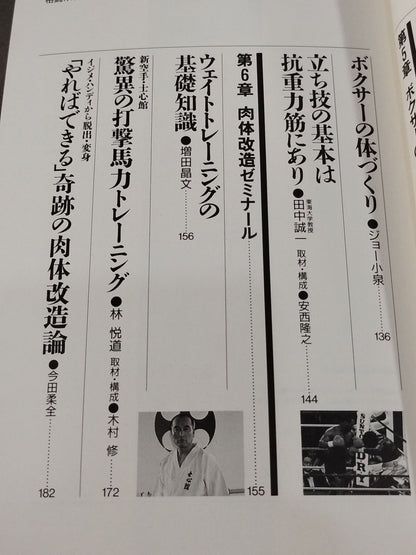 ボクサーの体づくり●ジョー小泉
136
立ち技の基本は
抗重力筋にあり●東海大学教授 田中誠一 取材・構成●安西隆之
144
第6章 肉体改造ゼミナール
155
ウェイトトレーニングの
基礎知識●増田晶文
156
新空手・士心館
驚異の打撃馬力トレーニング●林 悦道 取材・構成●木村 修
172
イジメ・ハンディから脱出・変身
「やればできる」奇跡の肉体改造論●今田柔全
182